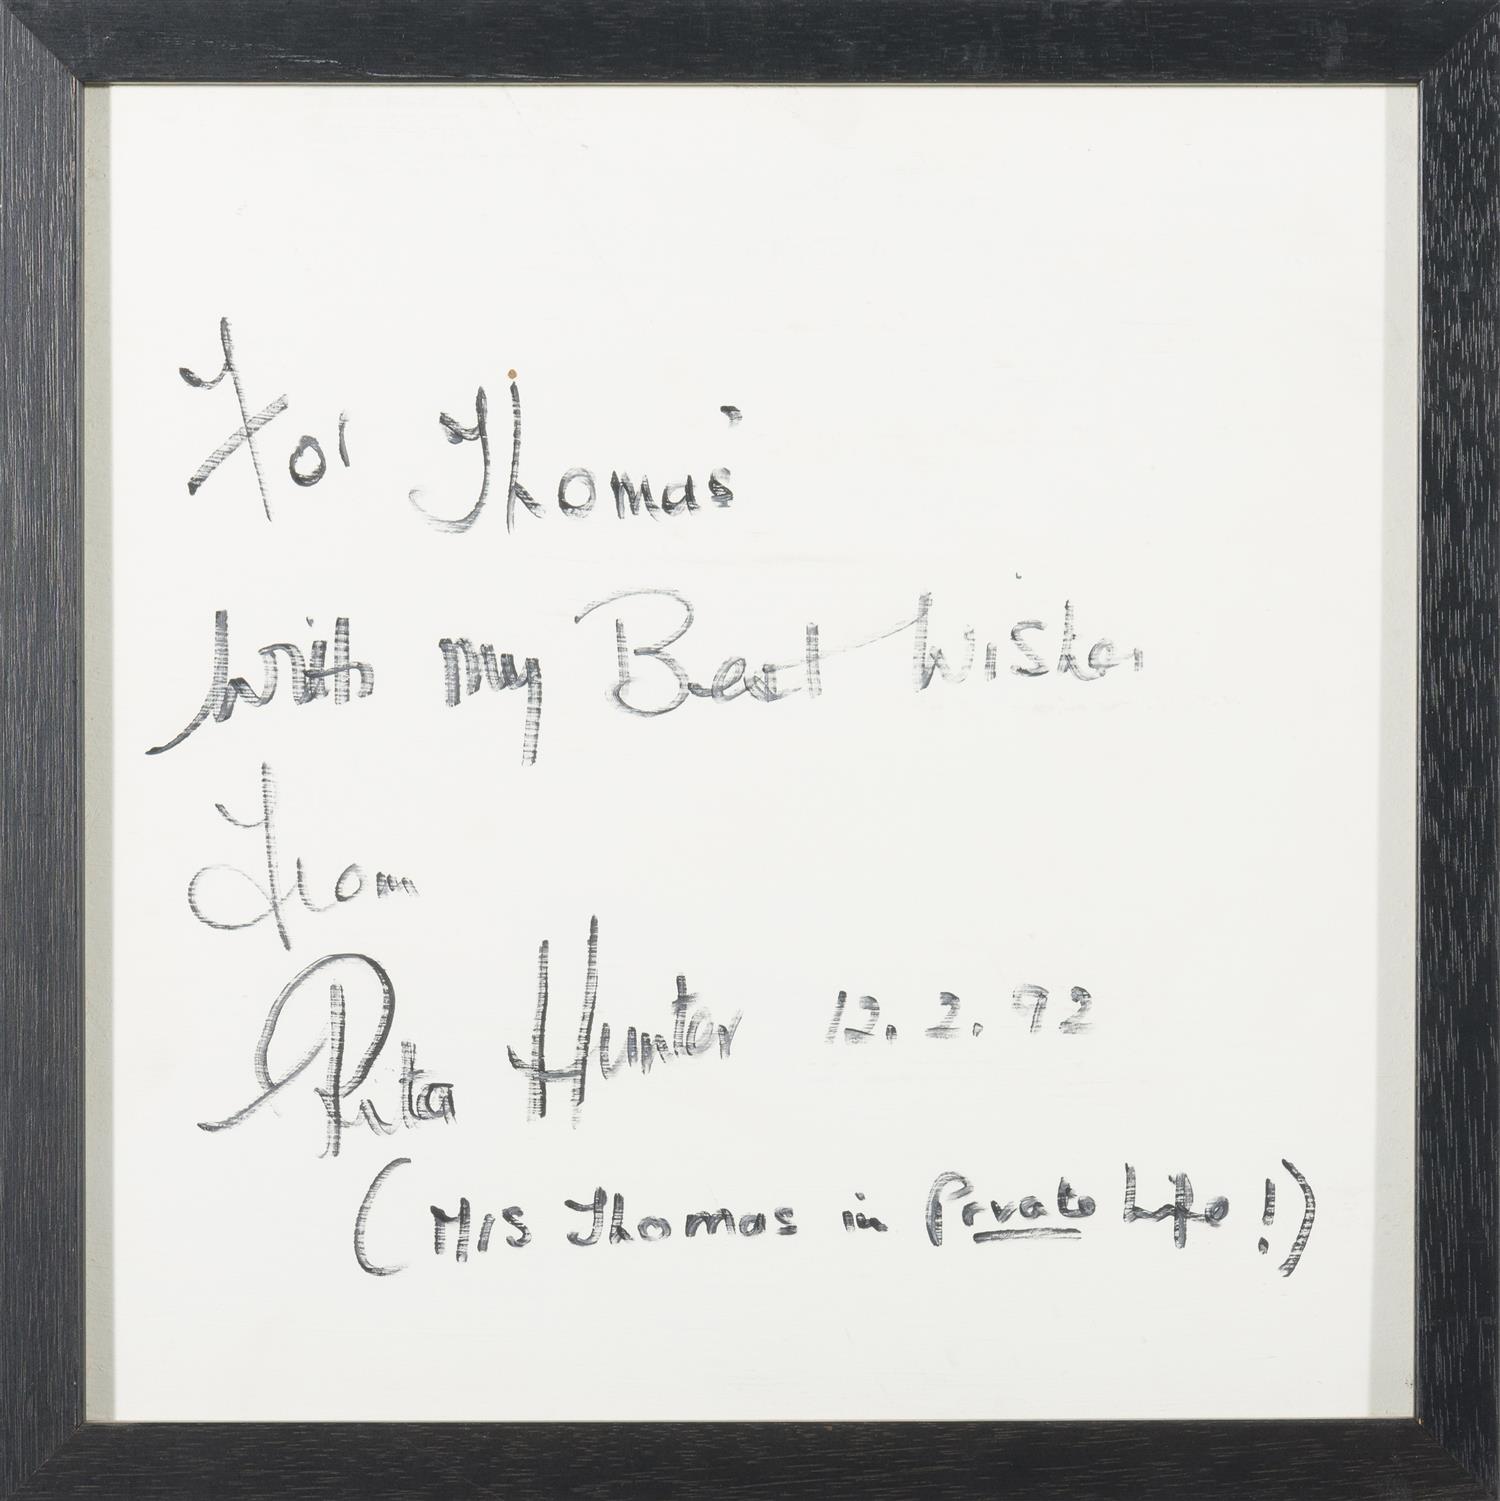 For Thomas
with my Best Wishes
From
Rita Hunter 12.2.92
(Mrs Thomas in Private Life!)